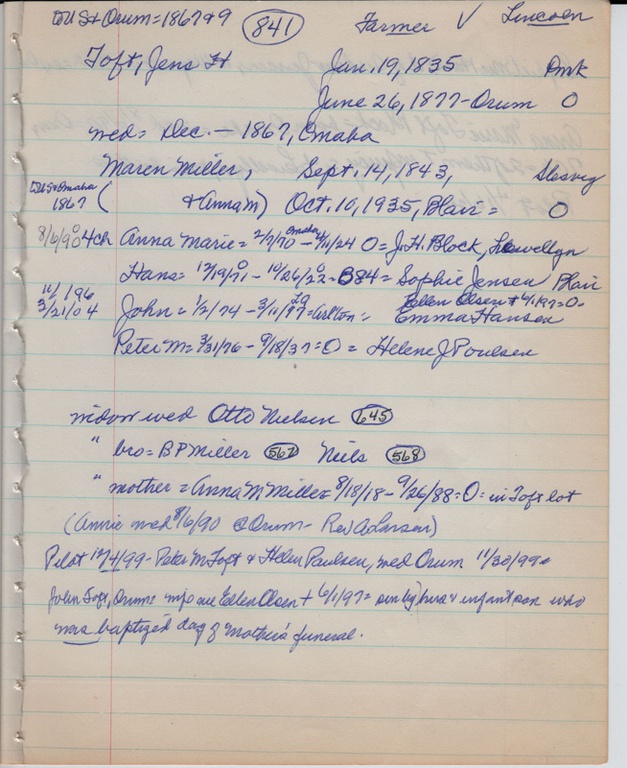 to US & Orum = 1867 & 9 (841) Farmer V Lincoln
Toft, Jens H Jan. 19, 1835 Dmk
June 26, 1877 - Orum O
wed = Dec. - 1867, Omaha
Maren Miller, Sept. 14, 1843, Slesvig
to US & Omaha 1867 ( & Anna M) Oct. 10, 1935, Blair = O
8/6/90 O 4 ch Anna Marie = 2/7/70 Omaha - /11/24 O = J. H. Block, Lewellyn
Hans = 12/19/71 - 10/26/22 O = 684 = Sophie Jensen Blair
Ellen Olsen + 6/1/97 = O =
11/1/96 3/21/04 John = 1/2/74 - 3/11/ = Carlton = Emma Hansen
Peter M = 3/31/76 - 9/18/37 = O = Helene J Poulsen
widow wed Otto Nielsen (645)
" bro = B P Miller (567) Neils (568)
" mother = Anna M Miller = 8/18/18 - 9/26/88 = O = in Toft lot
(Annie wed 8/6/90 @ Orum - Rev A Larsen)
Pilot 12/4/99 - Peter M Toft & Helen Paulsen, wed Orum 11/30/99 =
John Toft, Orum = wife née Ellen Olsen + 6/1/97 = survived by husb & infant son who
was baptized day of Mother's funeral.